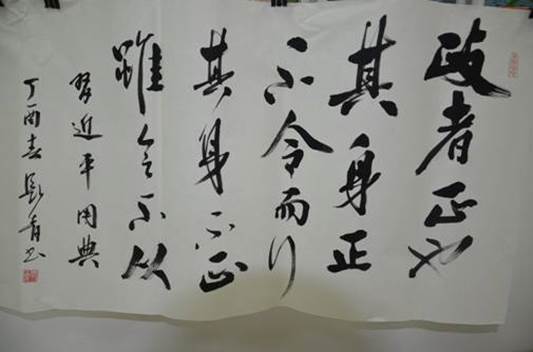 政者正也
其身正
不令而行
其身不正
雖令不从
习近平用典
丁酉春影育书